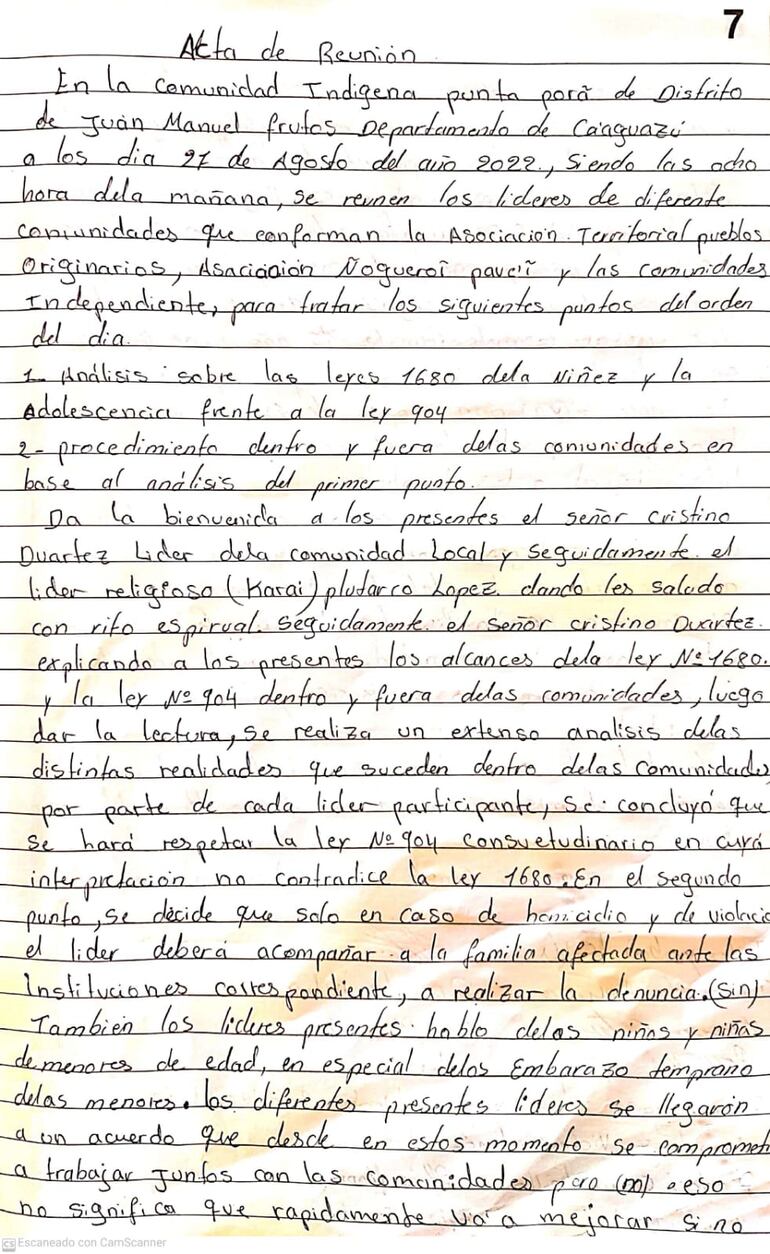 7
Acta de Reunión
En la Comunidad Indigena punta porã de Distrito
de Juan Manuel frutos Departamento de Ca'aguazú
a los dia 27 de Agosto del año 2022., Siendo las ocho
hora dela mañana, se reunen los lideres de diferente
comunidades que conforman la Asociación Territorial pueblos
Originarios, Asaciación Ñogueroĩ pave'ĩ y las comunidades
Independiente, para tratar los siguientes puntos del orden
del dia.
1- Análisis sobre las leyes 1680 dela Niñez y la
Adolescencia frente a la ley 904
2- procedimiento dentro y fuera delas comunidades en
base al análisis del primer punto.
Da la bienvenida a los presentes el señor cristino
Duartez Lider dela comunidad Local y seguidamente el
lider religioso (Karai) plutarco Lopez. dando les saludo
con rito espirual. Seguidamente el señor cristino Duartez.
explicando a los presentes los alcances dela ley Nº 1680.
y la ley Nº 904 dentro y fuera delas comunidades, luego
dar la lectura, se realiza un extenso analisis delas
distintas realidades que suceden dentro delas Comunidades
por parte de cada lider participante, se concluyó que
se hará respetar la ley Nº 904 Consuetudinario en cuya
interpretación no contradice la ley 1680. En el segundo
punto, se decide que solo en caso de homicidio y de violacio
el lider deberá acompañar a la familia afectada ante las
Instituciones correspondiente, a realizar la denuncia. (sin)
También los lideres presentes hablo delas niñas y niñas
de menores de edad, en especial delos Embarazo temprano
delas menores. los diferentes presentes lideres se llegarón
a un acuerdo que desde en estos momento se compromet
a trabajar Juntos con las comunidades pero (m) eso
no significa que rapidamente va a mejorar si no
CS Escaneado con CamScanner